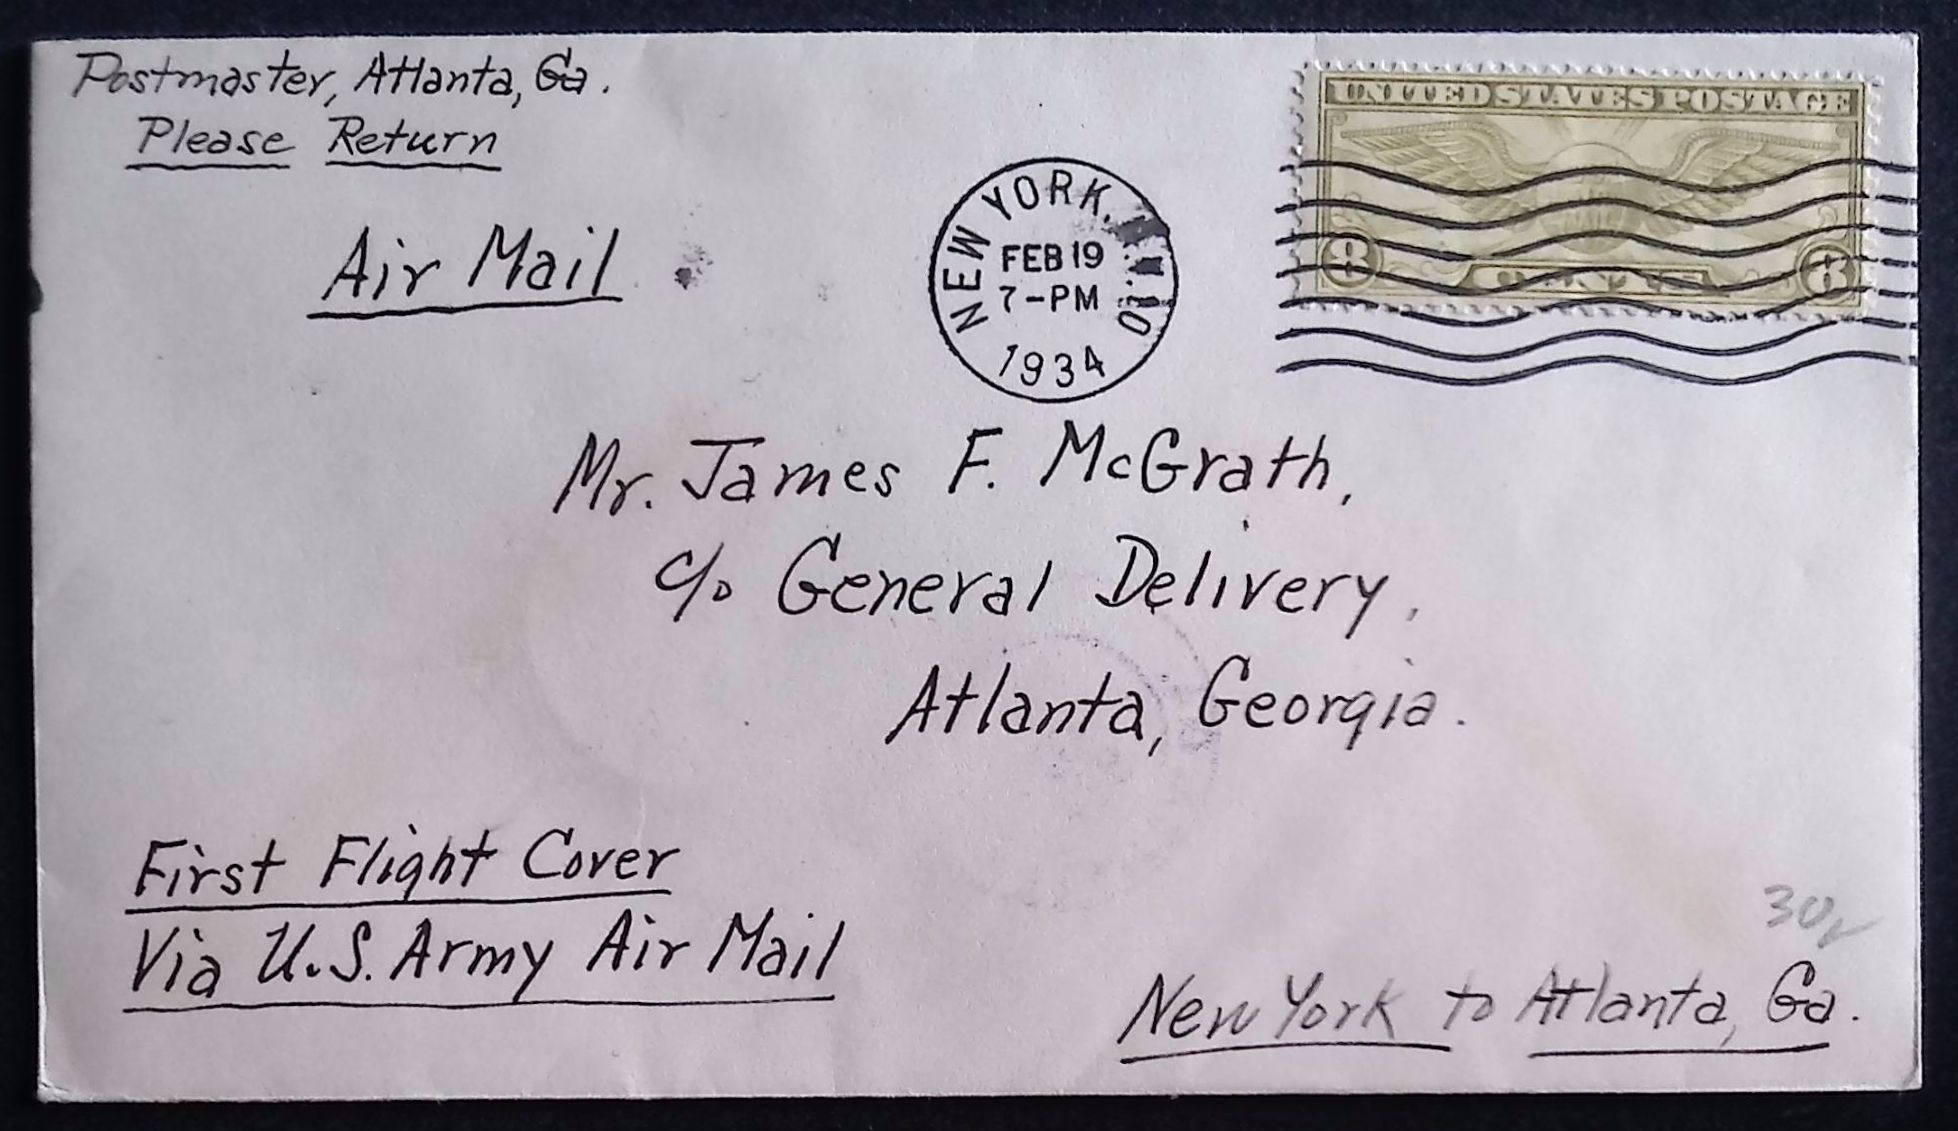 Postmaster, Atlanta, Ga.
Please Return
Air Mail
UNITED STATES POSTAGE
8 8
NEW YORK, N.Y.
FEB 19
7-PM
1934
Mr. James F. McGrath,
c/o General Delivery,
Atlanta, Georgia.
First Flight Cover
Via U.S. Army Air Mail
30
New York to Atlanta, Ga.